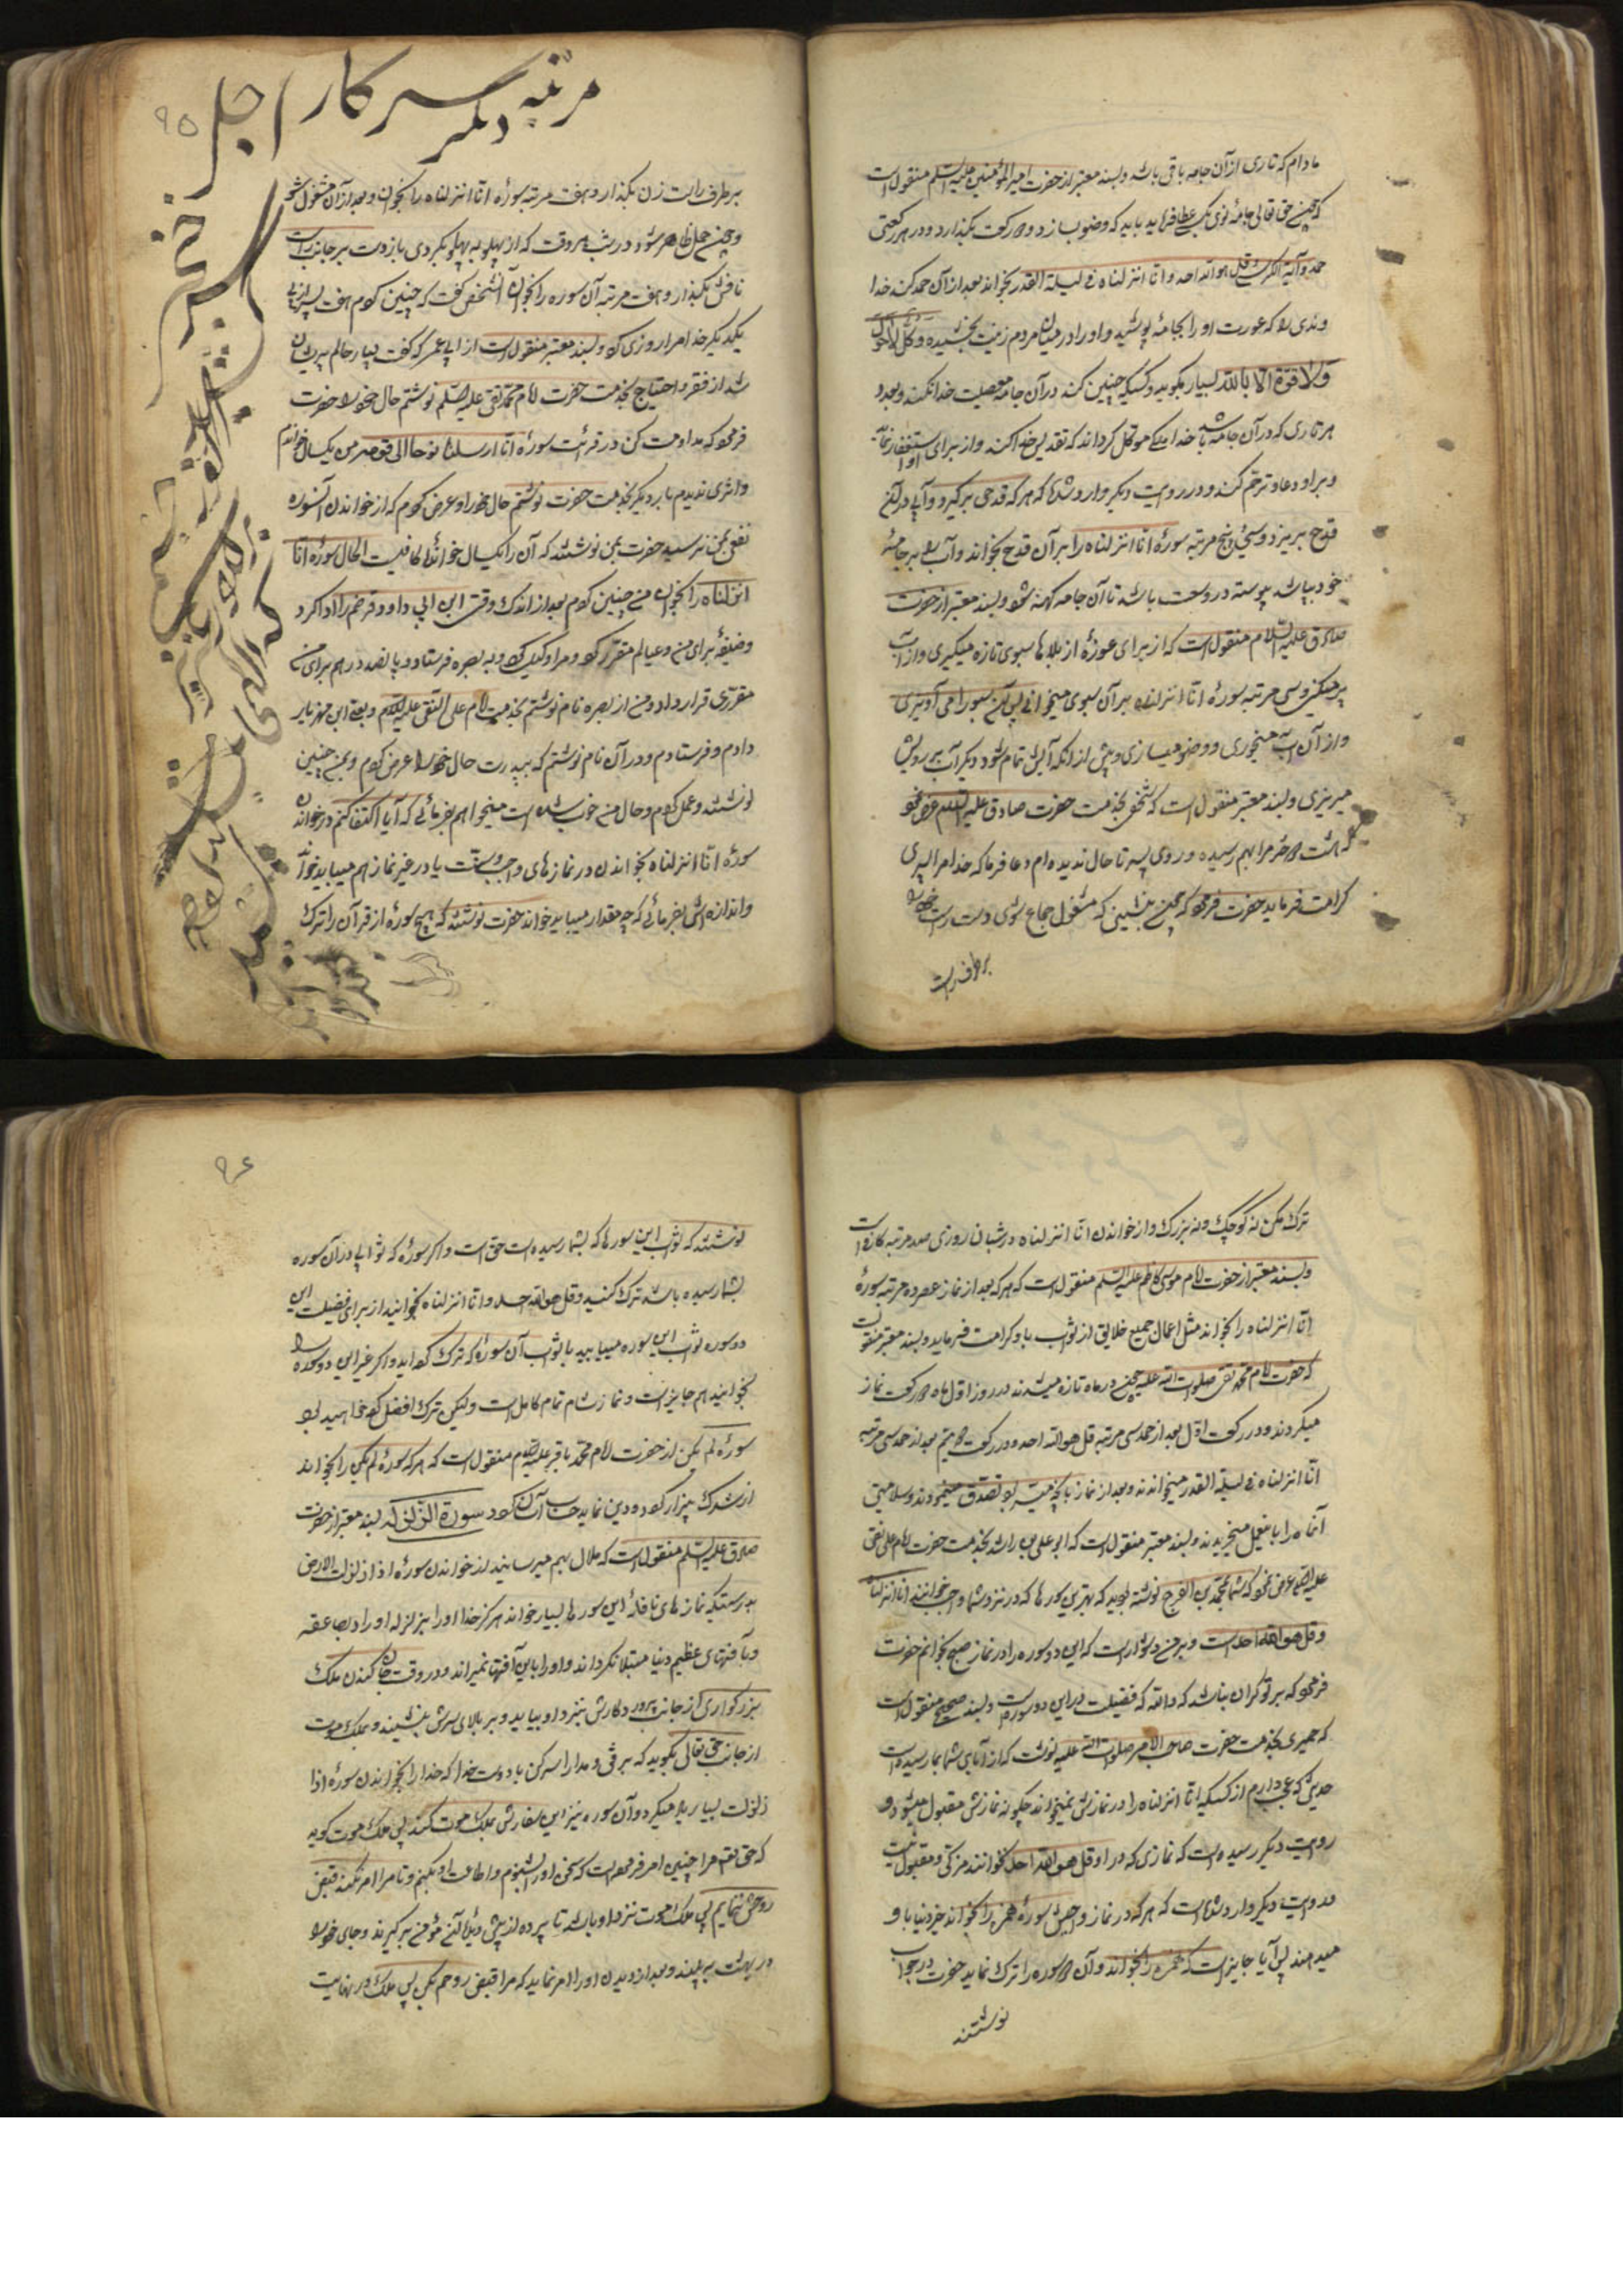 مادام که تاری ازآن جامه باقی باشد وبسند معتبر از حضرت امیرالمؤمنین علیه السلم منقول است
که چون حق تعالی جامهٔ نوی بکسی عطا فرماید باید که وضو بسازد و دو رکعت بکذارد ودر هر رکعتی
حمد وآیة الکرسی وقل هو الله احد وانا انزلناه فی لیلة القدر بخواند بعد ازآن حمد کند خدا
وندی را که عورت او را بجامه پوشید واورا درمیان مردم زینت بخشیده و
ولا قوة الا بالله بسیار بکوید وکسیکه چنین کند درآن جامه معصیت خدا نکند وبعدد
هر تاری که درآن جامه باشد خدا ملکی موکل کرداند که تقدیس خدا کند واز برای او استغفار نماید
وبراو دعا وترحم کند ودر روایت دیکر وارد شده که هرکه قدحی برکیرد وآبی درآن
قدح بریزد وسی وپنج مرتبه سورهٔ انا انزلناه را برآن قدح بخواند وآب را بر جامهٔ
خود بپاشد پیوسته در وسعت باشد تا آن جامه کهنه شود وبسند معتبر از حضرت
صادق علیه السلام منقول است که از برای عوذهٔ از بلاها سبوی تازه میکیری واز آب
پر میکنی وسی مرتبه سورهٔ انا انزلناه برآن سبوی میخوانی پس آن سبو را می آویزی
واز آن آب میخوری ووضو میسازی وپیش ازآنکه آبش تمام شود دیکر آب برویش
میریزی وبسند معتبر منقول است که شخصی بخدمت حضرت صادق علیه السلم عرض نمود
که هشت دختر مرا بهم رسیده وروی پسر تا حال ندیده ام دعا فرما که خدا مرا پسری
کرامت فرماید حضرت فرمود که چون بنشینی که مشغول جماع شوی دست راست خود را
برطرف راست
۹۵
مرتبه دیکر سرکار اجل
برطرف راست زن بکذار وهفت مرتبه سورهٔ انا انزلناه را بخوان وبعد ازآن مشغول شو
وچون حمل ظاهر شود در شب هر وقت که از پهلو به پهلو بکردی باز دست بر جانب راست
نافش بکذار وهفت مرتبه آن سوره را بخوان آن شخص کفت که چنین کردم هفت پسر از پی
یکدیکر خدا مرا روزی کرد وبسند معتبر منقول است از که کفت بسیار حالم پریشان
شد از فقر واحتیاج بخدمت حضرت امام محمد تقی علیه السلم نوشتم حال خود را حضرت
فرمود که مداومت کن در قرائت سورهٔ انا ارسلنا نوحا الی قومه من یکسال خواندم
واثری ندیدم بار دیکر بخدمت حضرت نوشتم حال خود را وعرض کردم که از خواندن آنسوره
نفعی بمن نرسید حضرت بمن نوشتند که آن را یکسال خواندی کافیست الحال سورهٔ انا
انزلناه را بخوان من چنین کردم بعد از اندک وقتی ابن ابی داود قرضم را ادا کرد
وظیفهٔ برای من وعیالم مقرر کرد ومرا وکیل کرد وبه بصره فرستاد وپانصد درهم برای من
مقرری قرار داد ومن از بصره نامه نوشتم بخدمت امام علی النقی علیه السلام وبعلی ابن مهزیار
دادم وفرستادم ودرآن نامه نوشتم که بپدرت حال خود را عرض کردم وبمن چنین
نوشتند وعمل کردم وحال من خوب شده است میخواهم بفرمائی که آیا اکتفا کنم درخواندن
سورهٔ انا انزلناه بخواندن در نمازهای واجب وسنت یا در غیر نماز هم میباید خواند
واندازه اش بفرمائی که چه مقدار میباید خواند حضرت نوشتند که هیچ سورهٔ از قرآن را ترک
ترک مکن نه کوچک ونه بزرک واز خواندن انا انزلناه در شبانروزی صد مرتبه کافی است
وبسند معتبر از حضرت امام موسی کاظم علیه السلم منقول است که هرکه بعد از نماز عصر ده مرتبه سورهٔ
انا انزلناه را بخواند مثل اعمال جمیع خلایق از ثواب باو کرامت فرماید وبسند معتبر منقول است
که حضرت امام محمد تقی صلوات الله علیه چون در ماه تازه میشدند در روز اول ماه دو رکعت نماز
میکردند ودر رکعت اول بعد از حمد سی مرتبه قل هو الله احد ودر رکعت دویم بعد از حمد سی مرتبه
انا انزلناه فی لیلة القدر میخواندند وبعد از نماز بآنچه میسر بود تصدق مینمودند وسلامتی
آنماه را باینعمل میخریدند وبسند معتبر منقول است که ابو علی بن راشد بخدمت حضرت امام علی نقی
علیه السلام عرض نمود که شما بمحمد بن الفرج نوشته بودید که بهترین سورها که در نماز واجب خوانند انا انزلناه
وقل هو الله احد است وبر من دشوار است که این دو سوره را در نماز صبح بخوانم حضرت
فرمود که بر تو کران نباشد که والله که فضیلت دراین دو سوره است وبسند صحیح منقول است
که حمیری بخدمت حضرت صاحب الامر صلوات الله علیه نوشت که از آبای شما بما رسیده است
حدیثی که عجب دارم از کسیکه انا انزلناه را در نمازش نمیخواند چکونه نمازش مقبول میشود ودر
روایت دیکر رسیده است که نمازی که در او قل هو الله احد نخوانند مزکی ومقبول نیست
ودر روایت دیکر وارد شده است که هرکه در نماز واجبش سورهٔ همزه را بخواند خیر دنیا باو
میدهند پس آیا جایز است که همزه را بخواند وآن دو سوره را ترک نماید حضرت در جواب
نوشتند
۹۶
نوشتند که ثواب این سورها که بشما رسیده است حق است واکر سورهٔ که ثوابی درآن سوره
بشما رسیده باشد ترک کنید وقل هو الله احد وانا انزلناه بخوانید از برای فضیلت این
دو سوره ثواب این سوره میبابید با ثواب آن سورهٔ که ترک کرده اید واکر غیر این دو سوره را
بخوانید هم جایز است ونمازتان تمام کامل است ولیکن ترک افضل کرده خواهید بود
سورهٔ لم یکن از حضرت امام محمد باقر علیه السلام منقول است که هرکه سورهٔ لم یکن را بخواند
از شرک بیزار کردد سورة الزلزله بسند معتبر از حضرت
صادق علیه السلم منقول است که ملال بهم میرسانید از خواندن سورهٔ اذا زلزلت الارض
بدرستیکه نمازهای نافله این سوره را بسیار خواند هرکز خدا اورا بزلزله اورا وبصاعقه
وبآفتهای عظیم دنیا مبتلا نکرداند واورا باین آفتها نمیراند ودر وقت جان کندن ملک
بزرکواری از جانب پروردکارش بنزد او بیاید وبر بالای سرش بنشیند وبملک موت
از جانب حق تعالی بکوید که برفق ومدارا سر کن با دوست خدا که خدا را بخواندن سورهٔ اذا
زلزلت بسیار یاد میکرد وآن سوره نیز این سفارش بملک موت کند پس ملک موت کوید
که حق تعالی مرا چنین امر فرموده است که سخن اورا بشنوم واطاعت او بکنم وتا مرا امر نکند قبض
روحش ننمایم پس ملک موت نزد او باشد تا پرده از پیش دیدهٔ آن مؤمن برکیرند وجای خود را
در بهشت به بیند وبعد از دیدن اورا امر نماید که مرا قبض روحم بکن پس ملک در نهایت